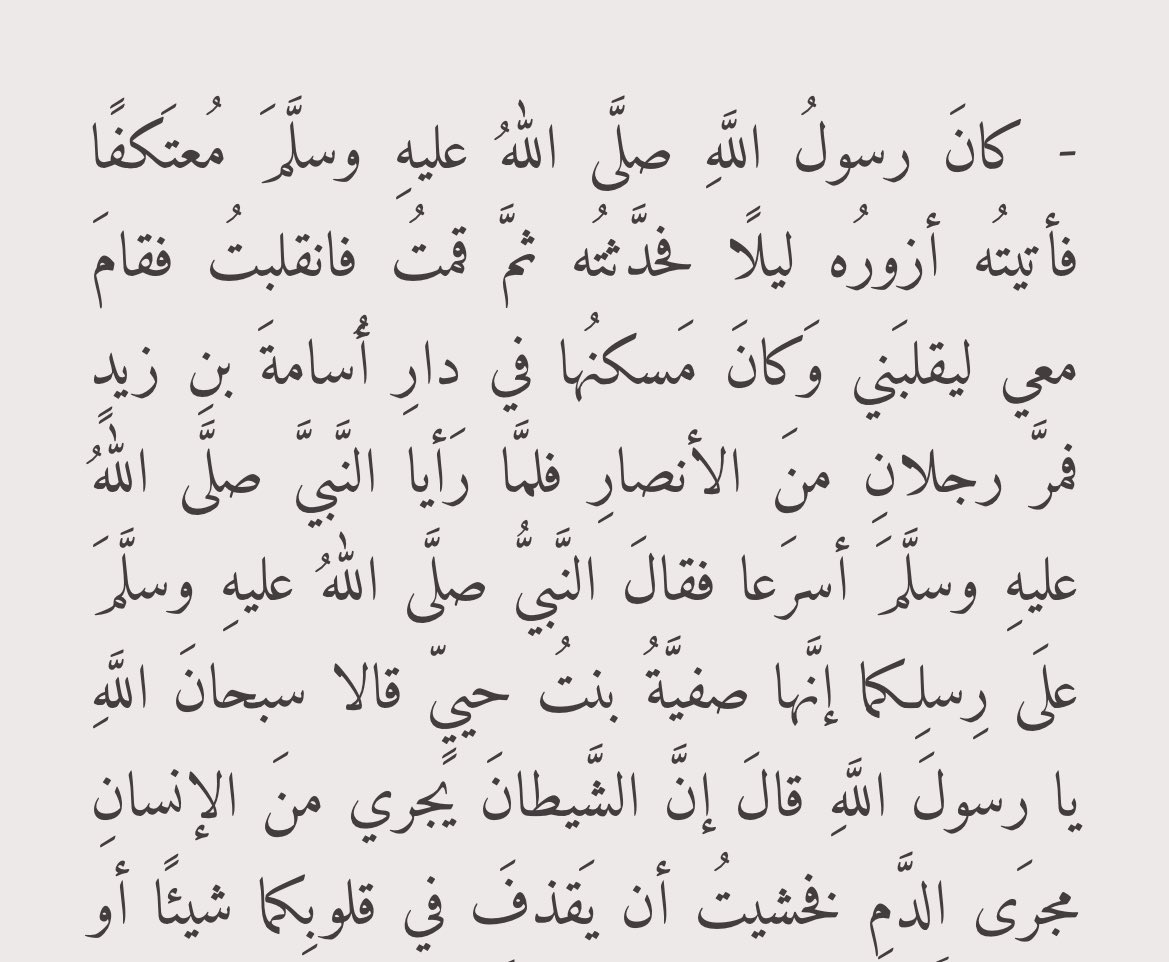 - كانَ رسولُ اللَّهِ صلَّى اللهُ عليهِ وسلَّمَ مُعتَكفًا
فأتيتُه أزورُه ليلًا فحدَّثتُه ثمَّ قمتُ فانقلبتُ فقامَ
معي ليقلبَني وَكانَ مَسكنُها في دارِ أُسامةَ بنِ زيدٍ
فمرَّ رجلانِ منَ الأنصارِ فلمَّا رَأيا النَّبيَّ صلَّى اللهُ
عليهِ وسلَّمَ أسرَعا فقالَ النَّبيُّ صلَّى اللهُ عليهِ وسلَّمَ
علَى رِسلِكما إنَّها صفيَّةُ بنتُ حييّ قالا سبحانَ اللَّهِ
يا رسولَ اللَّهِ قالَ إنَّ الشَّيطانَ يجري منَ الإنسانِ
مجرَى الدَّمِ فخشيتُ أن يَقذفَ في قلوبِكما شيئًا أو